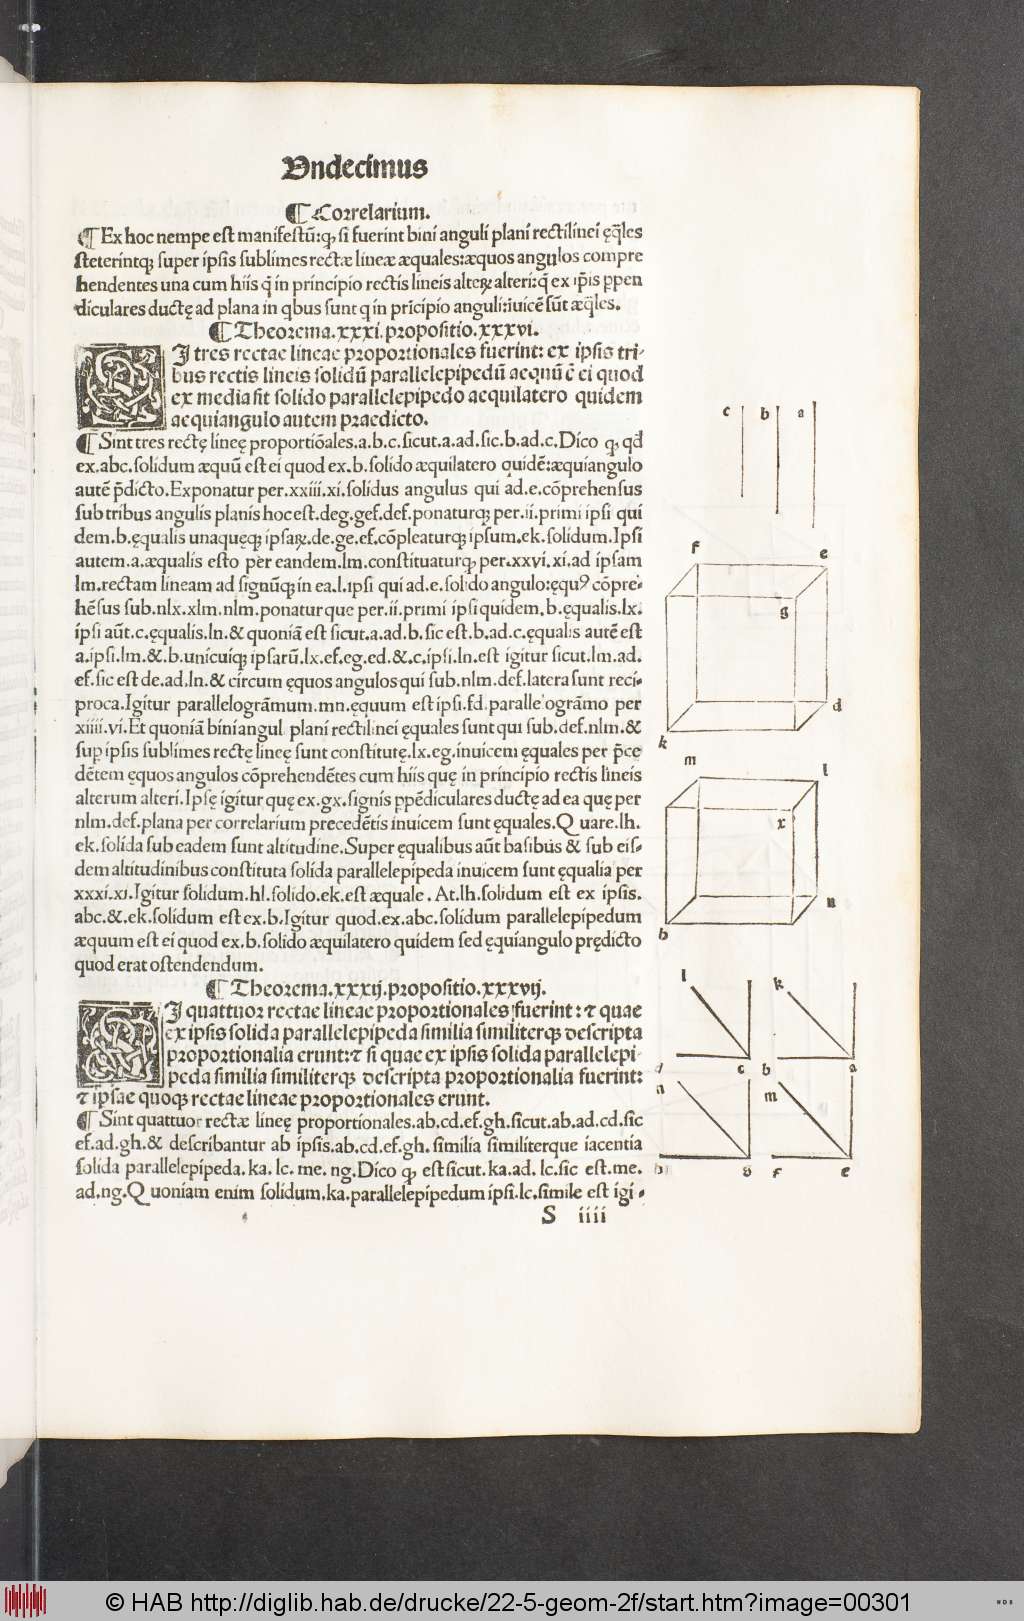 Vndecimus
¶ Correlarium.
¶ Ex hoc nempe est manifestũ:ꝙ si fuerint bini anguli plani rectilinei ęq̃les
steterintqꝫ super ipsis sublimes rectæ lineæ æquales:æquos angulos compre
hendentes una cum hiis q̃ in principio rectis lineis alteꝝ alteri:q̃ ex ip̃is ꝑpen
diculares ductę ad plana in qbus sunt q in prĩcipio anguli:ĩuicẽ sũt æq̃les.
¶ Theorema.xxxi.propositio.xxxvi.
SI tres rectae lineae proportionales fuerint: ex ipsis tri-
bus rectis lineis solidũ parallelepipedũ aequũ ẽ ei quod
ex media fit solido parallelepipedo aequilatero quidem
aequiangulo autem praedicto.
¶ Sint tres rectę lineę proportiõales.a.b.c.sicut.a.ad.sic.b.ad.c.Dico ꝙ qd̃
ex.abc.solidum æquũ est ei quod ex.b.solido æquilatero quidẽ:æquiangulo
autẽ p̃dicto.Exponatur per.xxiii.xi.solidus angulus qui ad.e.cõprehensus
sub tribus angulis planis hoc est.deg.gef.def.ponaturqꝫ per.ii.primi ipsi qui
dem.b.ęqualis unaquęqꝫ ipsaꝝ.de.ge.ef.cõpleaturqꝫ ipsum.ek.solidum.Ipsi
autem.a.æqualis esto per eandem.lm.constituaturqꝫ per.xxvi.xi.ad ipsam
lm.rectam lineam ad signũqꝫ in ea.l.ipsi qui ad.e.solido angulo:ęquꝰ cõpre-
hẽsus sub.nlx.xlm.nlm.ponatur que per.ii.primi ipsi quidem.b.ęqualis.lx.
ipsi aũt.c.ęqualis.ln.& quoniã est sicut.a.ad.b.sic est.b.ad.c.ęqualis autẽ est
a.ipsi.lm.&.b.unicuiqꝫ ipsarũ.lx.ef.eg.ed.&.c.ipsi.ln.est igitur sicut.lm.ad.
ef.sic est de.ad.ln.& circum ęquos angulos qui sub.nlm.def.latera sunt reci-
proca.Igitur parallelogrãmum.mn.ęquum est ipsi.fd.parallelogrãmo per
xiiii.vi.Et quoniã bini angul plani rectilinei ęquales sunt qui sub.def.nlm.&
suꝑ ipsis sublimes rectę lineę sunt constitutę.lx.eg.inuicem ęquales per p̃ce
dẽtem ęquos angulos cõprehendẽtes cum hiis quę in principio rectis lineis
alterum alteri.Ipsę igitur quę ex.gx.signis ꝑpẽdiculares ductę ad ea quę per
nlm.def.plana per correlarium precedẽtis inuicem sunt ęquales.Quare.lh.
ek.solida sub eadem sunt altitudine.Super ęqualibus aũt basibus & sub eis-
dem altitudinibus constituta solida parallelepipeda inuicem sunt ęqualia per
xxxi.xi.Igitur solidum.hl.solido.ek.est æquale. At.lh.solidum est ex ipsis.
abc.&.ek.solidum est ex.b.Igitur quod.ex.abc.solidum parallelepipedum
æquum est ei quod ex.b.solido æquilatero quidem sed ęquiangulo prędicto
quod erat ostendendum.
¶ Theorema.xxxij.propositio.xxxvij.
SI quattuor rectae lineae proportionales fuerint: ⁊ quae
ex ipsis solida parallelepipeda similia similiterqꝫ descripta
proportionalia erunt:⁊ si quae ex ipsis solida parallelepi-
peda similia similiterqꝫ descripta proportionalia fuerint:
⁊ ipsae quoqꝫ rectae lineae proportionales erunt.
¶ Sint quattuor rectæ lineę proportionales.ab.cd.ef.gh.sicut.ab.ad.cd.sic
ef.ad.gh.& describantur ab ipsis.ab.cd.ef.gh.similia similiterque iacentia
solida parallelepipeda. ka. lc. me. ng. Dico ꝙ est sicut. ka.ad. lc.sic est.me.
ad.ng.Quoniam enim solidum.ka.parallelepipedum ipsi.lc.simile est igi-
S iiii
c b a
f e
g
d
k
m l
x
n
b
l k
d c b a
n m
h g f e
© HAB http://diglib.hab.de/drucke/22-5-geom-2f/start.htm?image=00301